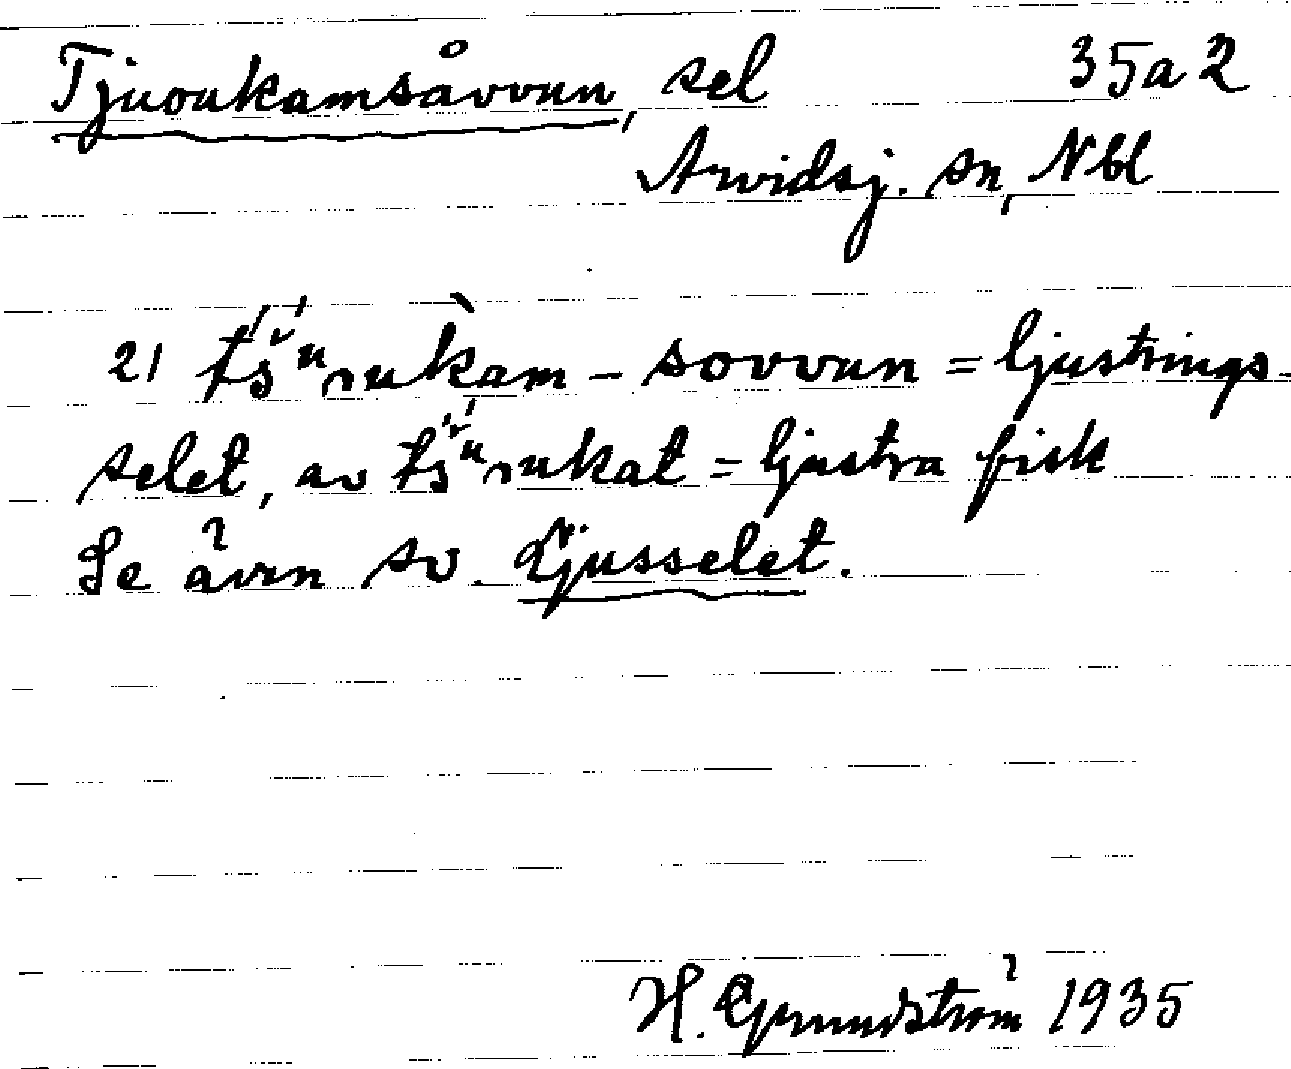 Tjuoukamsåvvun, sel 35a2
Arvidsj. sn, Nbl
21 tš́ᵘoukam-sovvun = ljustrings-
selet, av tš́ᵘoukat = ljustra fisk
Se även sv. Ljusselet.
H. Grundström 1935